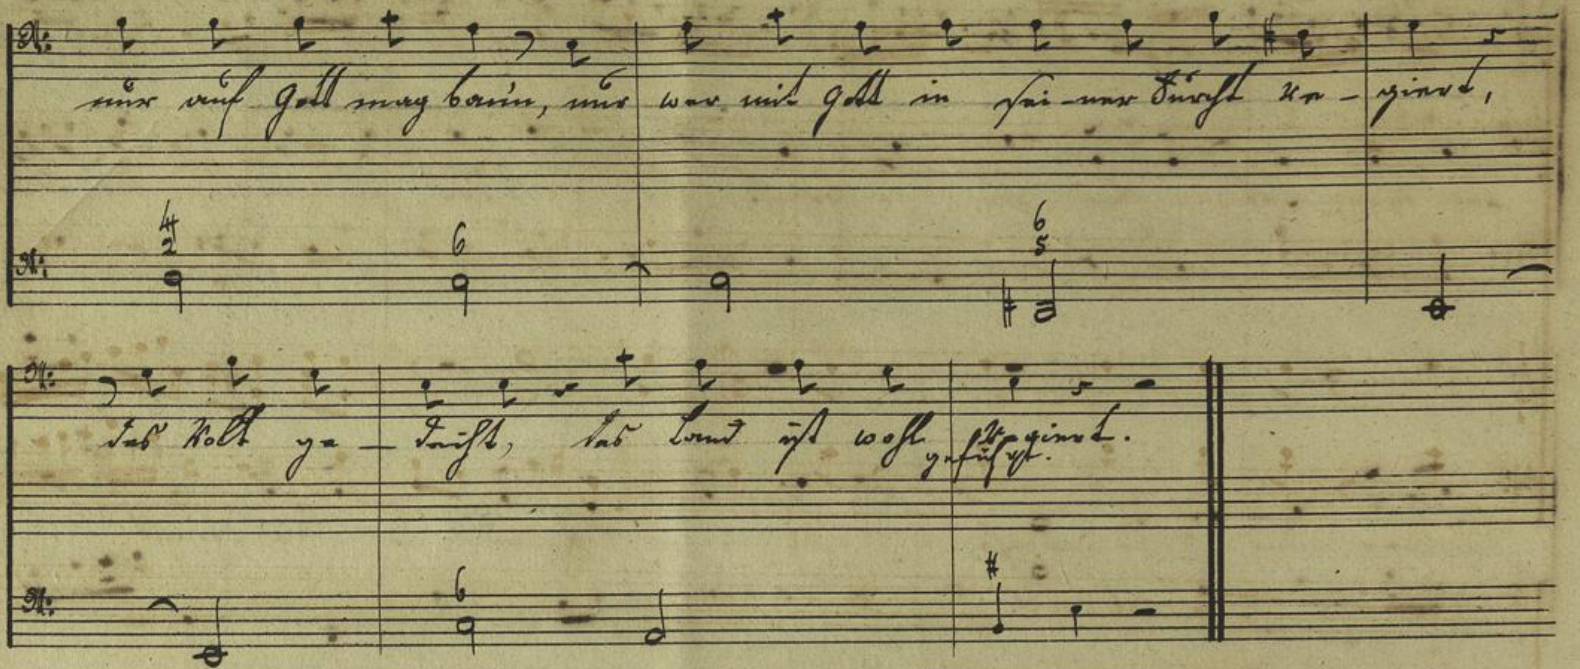 nur auf Gott mag baun, nur wer mit Gott in sei-ner Furcht re-giert,
4 6
2 6 5
das Volk ge-deiht, das Land ist wohl regiert.
geführt.
6 #